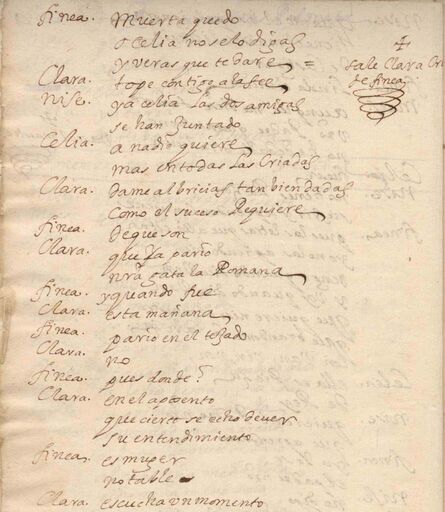 finea. Muerta quedo
o celia no se lo digas
y veras que te dare =
sale Clara Cri
de finea
Clara. topé contigo a la fee
nise. ya celia las dos amigas
se han Juntado
Celia. a nadie quiere
mas en todas las criadas
Clara. Dame albricias tan bien dadas
Como el suceso Requiere
finea. De que son
Clara. que ya pario
nrā gata la Romana
finea. y quando fue
Clara. esta mañana
finea. pario en el tejado
Clara. no
finea. pues donde?
Clara. en el aposento
que cierto se echo de ver
su entendimiento
finea. es muger
notable
Clara. escucha un momento